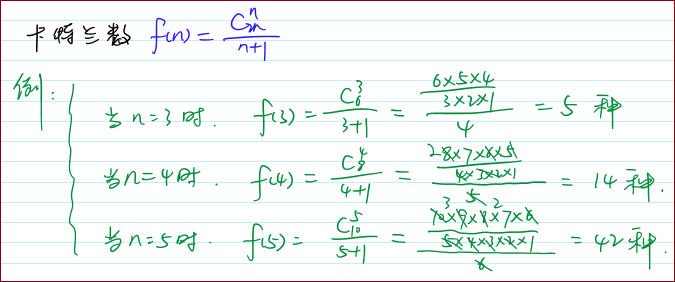 卡特兰数 f(n) = C_{2n}^{n} / (n+1)
例: 当 n=3 时. f(3) = C_6^3 / (3+1) = (6×5×4 / 3×2×1) / 4 = 5 种
当 n=4 时. f(4) = C_8^4 / (4+1) = (8×7×6×5 / 4×3×2×1) / 5 = 14 种.
当 n=5 时. f(5) = C_{10}^5 / (5+1) = (10×9×8×7×6 / 5×4×3×2×1) / 6 = 42 种.